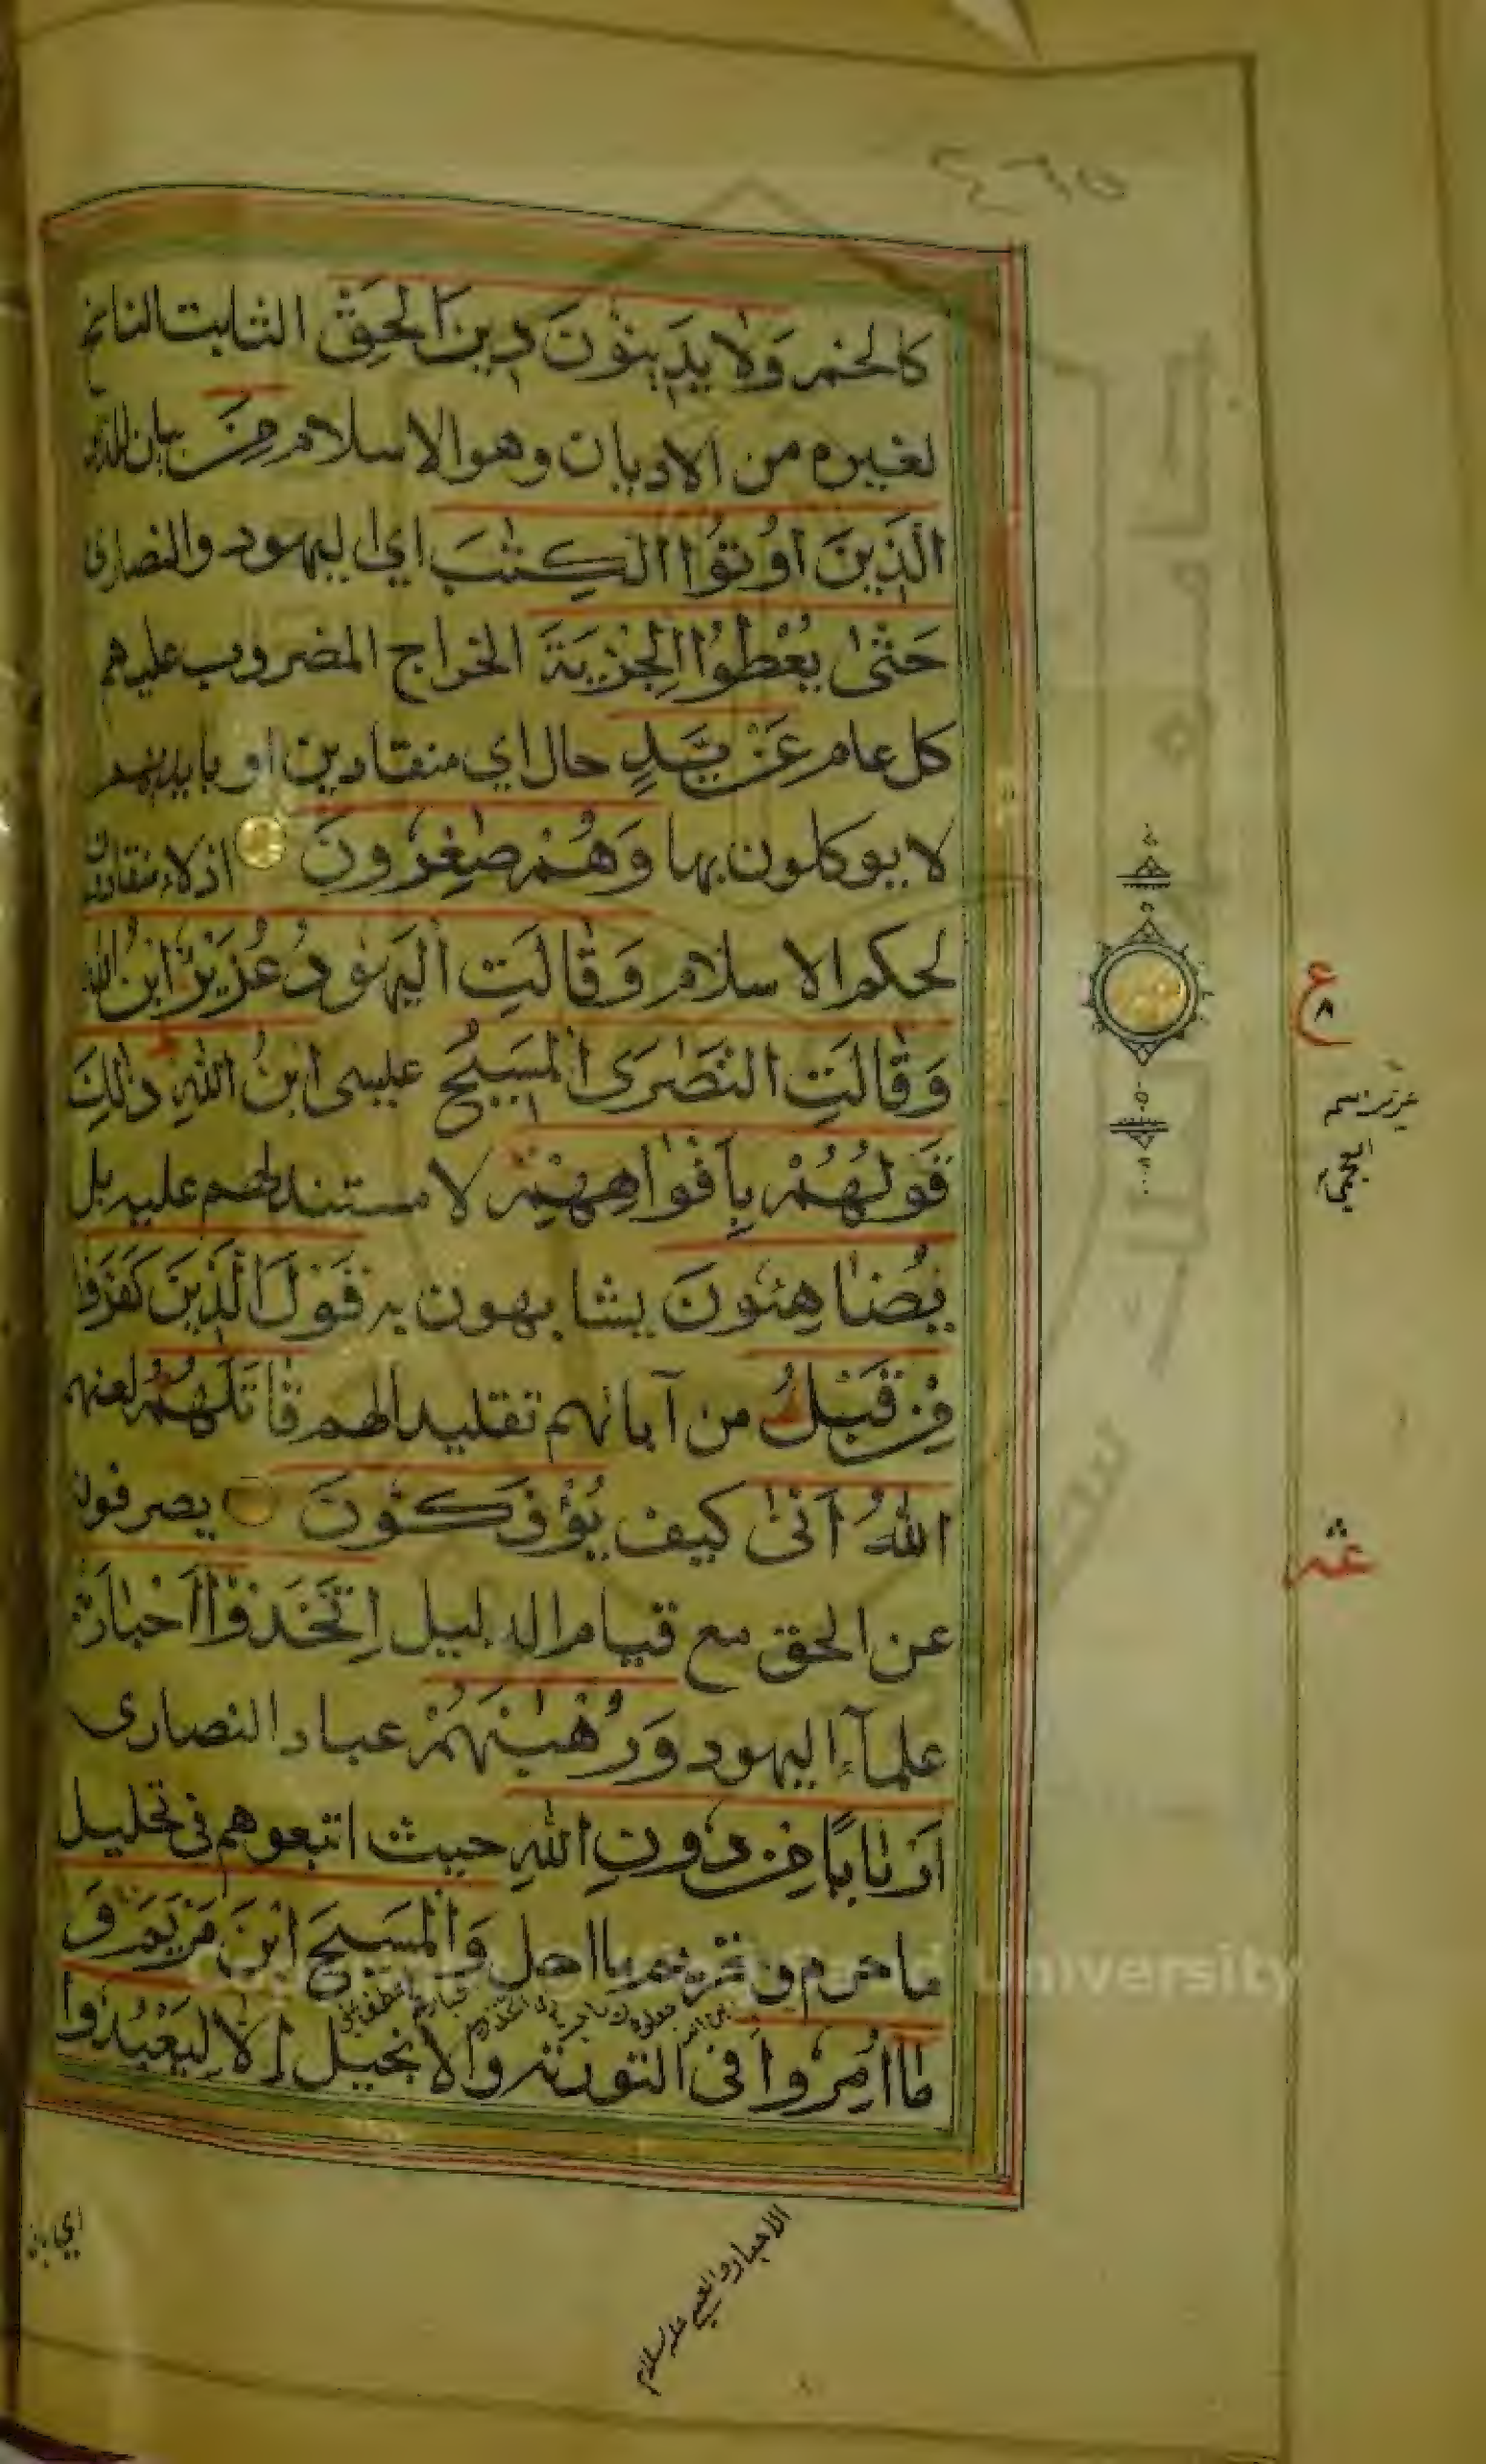 كالخمر وَلَا يَدِينُونَ دِينَ الْحَقِّ الثابت الناسخ
لغيره من الاديان وهو الاسلام مِنَ بيان للذين
الَّذِينَ اُوتُوا الْكِتٰبَ اي اليهود والنصارى
حَتّٰى يُعْطُوا الْجِزْيَةَ الخراج المضروب عليهم
كل عام عَنْ يَدٍ حال اي منقادين او بايديهم
لا يوكلون بها وَهُمْ صٰغِرُونَ اذلاء منقادون
لحكم الاسلام وَقَالَتِ الْيَهُودُ عُزَيْرٌ ابْنُ اللّٰهِ
وَقَالَتِ النَّصٰرَى الْمَسِيْحُ عيسى ابْنُ اللّٰهِ ذٰلِكَ
قَوْلُهُمْ بِاَفْوَاهِهِمْ لا مستند لهم عليه بل
يُضَاهِئُونَ يشابهون به قَوْلَ الَّذِينَ كَفَرُوا
مِنْ قَبْلُ من آبائهم تقليدا لهم قَاتَلَهُمُ لعنهم
اللّٰهُ اَنّٰى كيف يُؤْفَكُونَ يصرفون
عن الحق مع قيام الدليل اِتَّخَذُوْا اَحْبَارَهُمْ
علمآء اليهود وَرُهْبٰنَهُمْ عباد النصارى
اَرْبَابًا مِنْ دُونِ اللّٰهِ حيث اتبعوهم فى تحليل
ما حرم و تحريم ما احل وَالْمَسِيحَ ابْنَ مَرْيَمَ وَ
مَا اُمِرُوا فى التورٰىة والانجيل اِلَّا لِيَعْبُدُوا
ع
٨
عشر
الاحبار والعيسى عليه السلام
اي بان